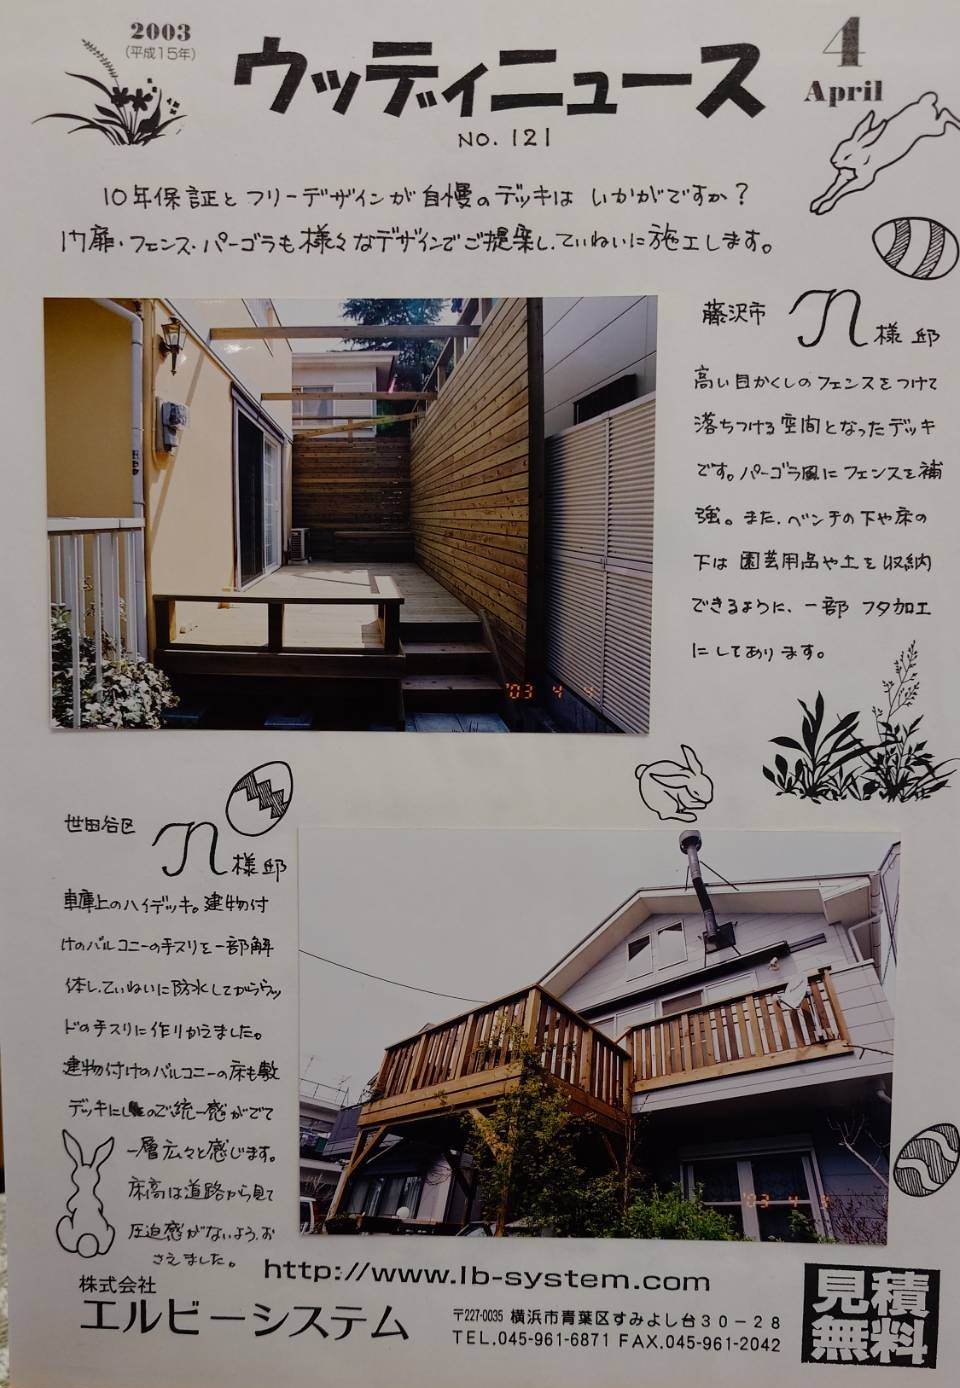 2003
(平成15年)
ウッディニュース
4
April
NO. 121
10年保証とフリーデザインが自慢のデッキは いかがですか?
門扉・フェンス・パーゴラも様々なデザインでご提案し、ていねいに施工します。
藤沢市 N 様邸
高い目かくしのフェンスをつけて
落ちつける空間となったデッキ
です。パーゴラ風にフェンスを補
強。また、ベンチの下や床の
下は園芸用品や土を収納
できるように、一部フタ加工
にしてあります。
'03 4
世田谷区
N 様邸
車庫上のハイデッキ。建物付
けのバルコニーの手スリを一部解
体し、ていねいに防水してからウッ
ドの手スリに作りかえました。
建物付けのバルコニーの床も敷
デッキにしたので統一感がでて
一層広々と感じます。
床高は道路から見て
圧迫感がないよう、お
さえました。
'03 4
http://www.lb-system.com
株式会社
エルビーシステム
〒227-0035 横浜市青葉区すみよし台30-28
TEL.045-961-6871 FAX.045-961-2042
見積
無料